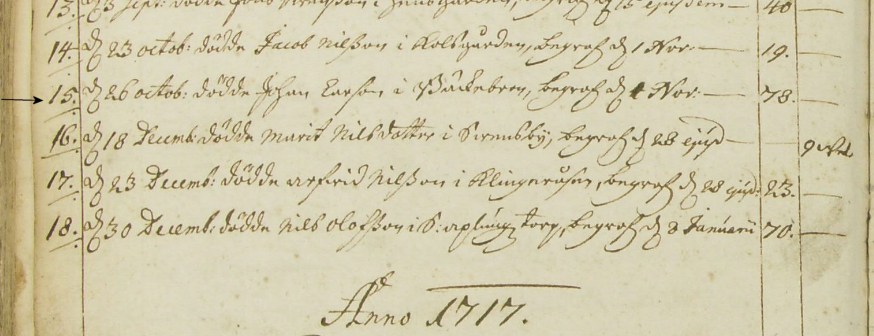 13. d 3 Sept: dödde
14. d 23 octob: dödde Jacob Nilsson i Kolsgården, begrof d 1 Nov: — 19. —
15. d 26 octob: dödde Johan Larson i Bäckebron, begrof d 4 Nov: — 78. —
16. d 18 Decemb: dödde Marit Nils dotter i Swensby, begrof d 28 ejusd —
17. d 23 Decemb: dödde Arfwid Nilsson i Klingerusen, begrof d 28 ejusd: 23. —
18. d 30 Decemb: dödde Nils Olofsson i torp, begrof d 8 Januarii 70. —
Anno 1717.